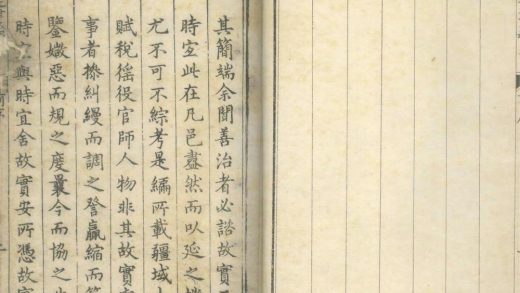 其簡端余聞善治者必諮故實
時宜此在凡邑盡然而以延之
尤不可不綜考是編所載疆域
賦稅徭役官師人物非其故實
事者撩糾縵而調之登贏縮而
鑒媺惡而規之度曩今而協之
時宜與時宜舍故實安所憑故